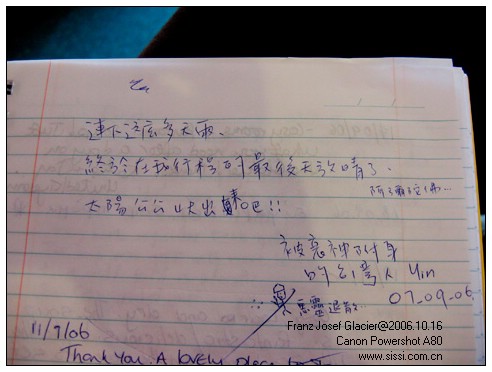 連下這麼多天雨、
終於在我行程的最後天放晴了
阿彌陀佛...
太陽公公快出來吧!!
被衰神附身
的台灣人 Yin
07.09.06
惡靈退散...
11/9/06
Thank You. A lovely place
Franz Josef Glacier@2006.10.16
Canon Powershot A80
www.sissi.com.ch